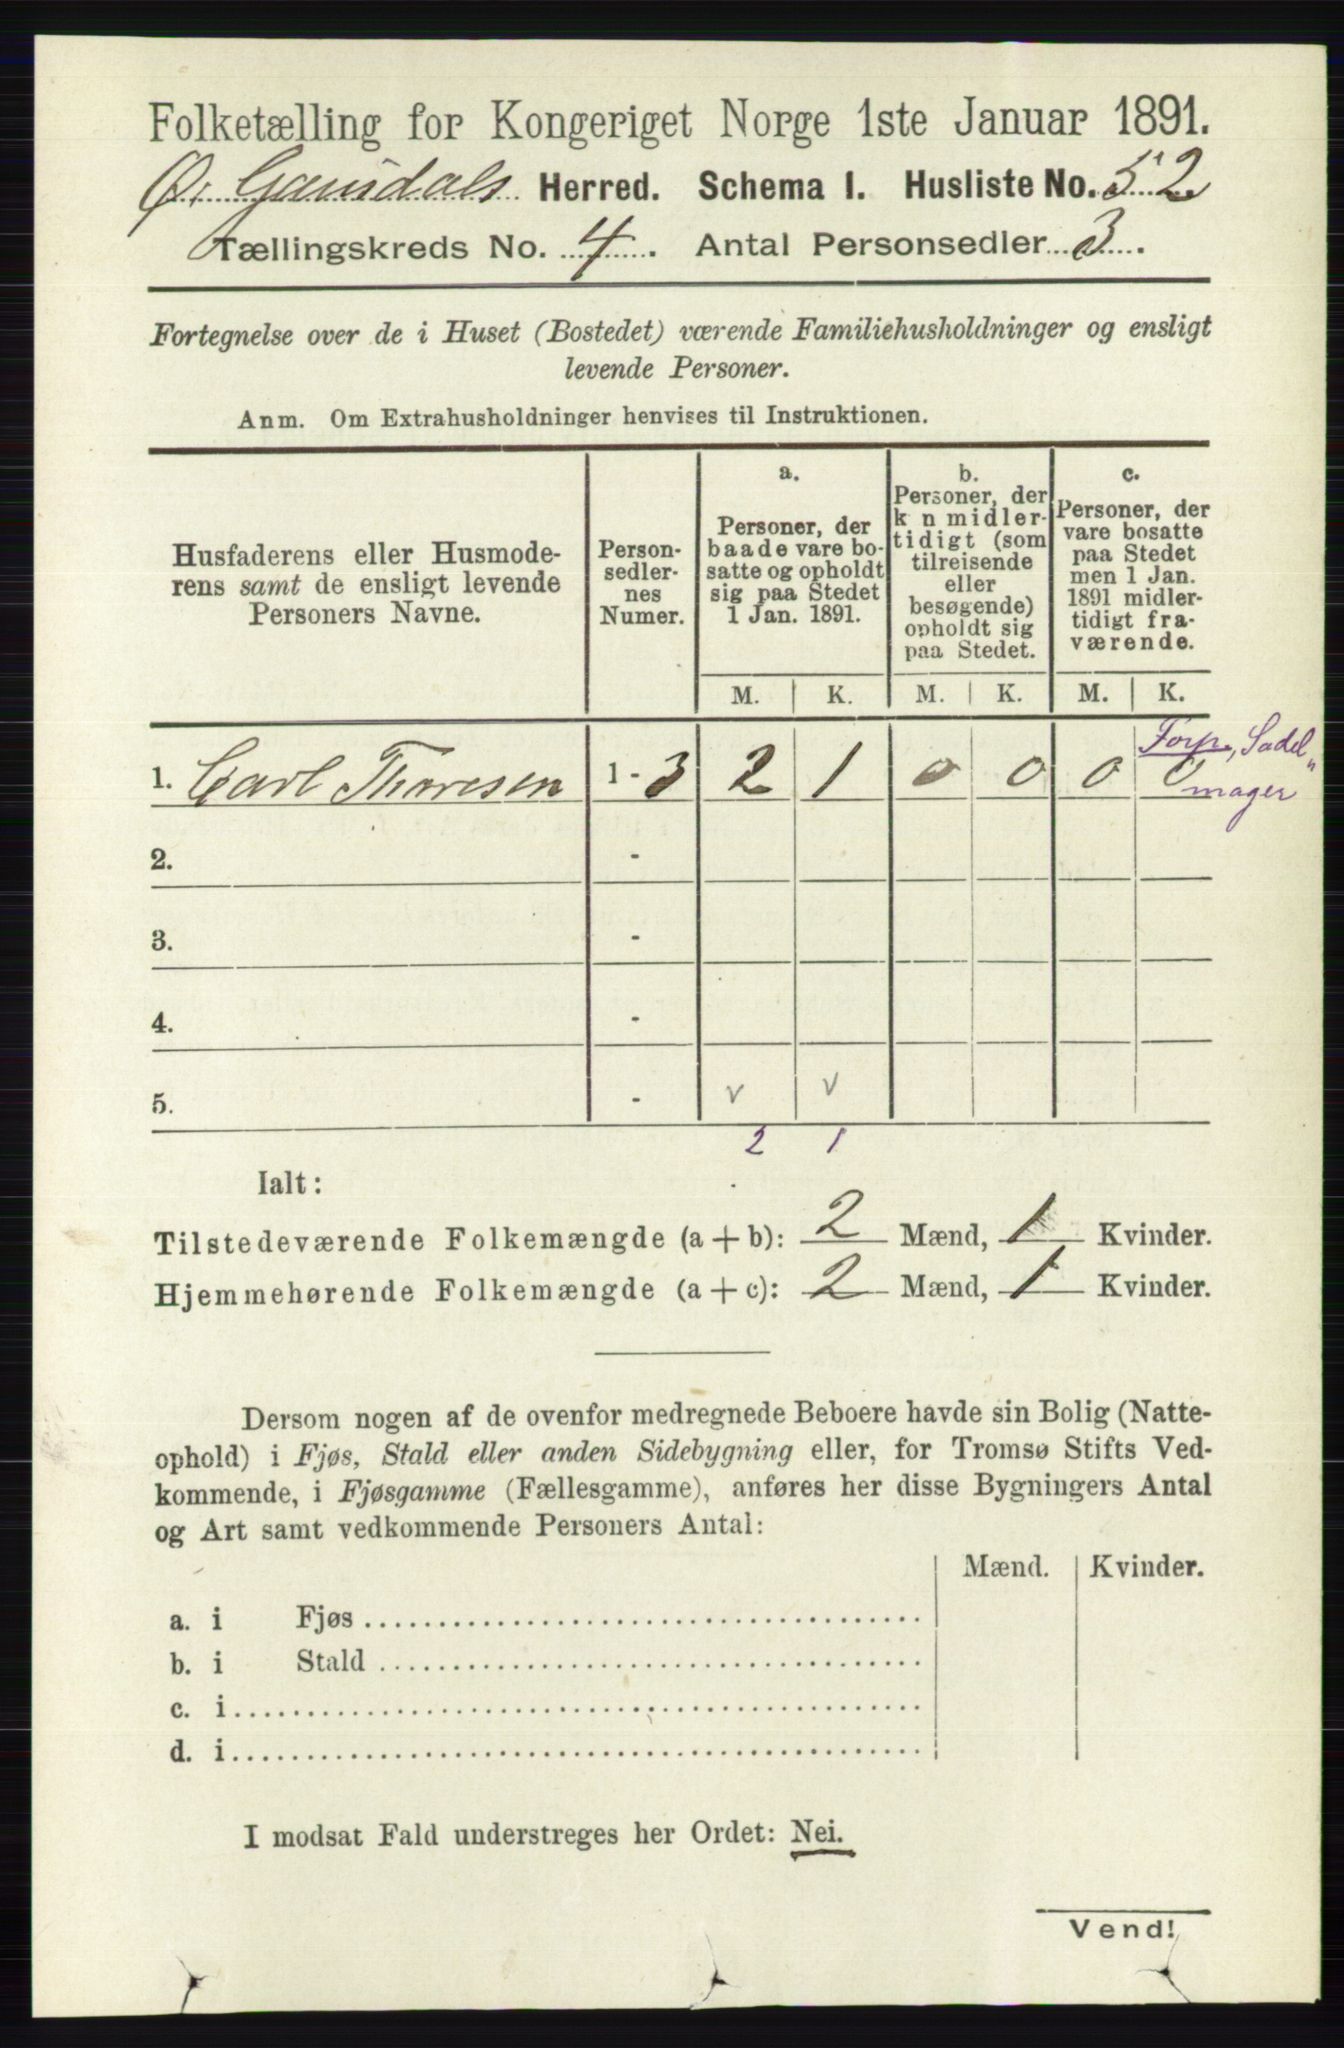 Folketælling for Kongeriget Norge 1ste Januar 1891.
Ø. Gausdals Herred. Schema I. Husliste No. 52
Tællingskreds No. 4. Antal Personsedler 3.
Fortegnelse over de i Huset (Bostedet) værende Familiehusholdninger og ensligt
levende Personer.
Anm. Om Extrahusholdninger henvises til Instruktionen.
Husfaderens eller Husmode-
rens samt de ensligt levende
Personers Navne.
Person-
sedler-
nes
Numer.
a.
Personer, der
baade vare bo-
satte og opholdt
sig paa Stedet
1 Jan. 1891.
b.
Personer, der
k n midler-
tidigt (som
tilreisende
eller
besøgende)
opholdt sig
paa Stedet.
c.
Personer, der
vare bosatte
paa Stedet
men 1 Jan.
1891 midler-
tidigt fra-
værende.
M. K. M. K. M. K.
1. Carl Thoresen 1 - 3 2 1 0 0 0 0 Torp, Sadel„
mager
2. -
3. -
4. -
5. - v v
2 1
Ialt:
Tilstedeværende Folkemængde (a + b): 2 Mænd, 1 Kvinder.
Hjemmehørende Folkemængde (a + c): 2 Mænd, 1 Kvinder.
Dersom nogen af de ovenfor medregnede Beboere havde sin Bolig (Natte-
ophold) i Fjøs, Stald eller anden Sidebygning eller, for Tromsø Stifts Ved-
kommende, i Fjøsgamme (Fællesgamme), anføres her disse Bygningers Antal
og Art samt vedkommende Personers Antal:
Mænd. Kvinder.
a. i Fjøs
b. i Stald
c. i
d. i
I modsat Fald understreges her Ordet: Nei.
Vend!